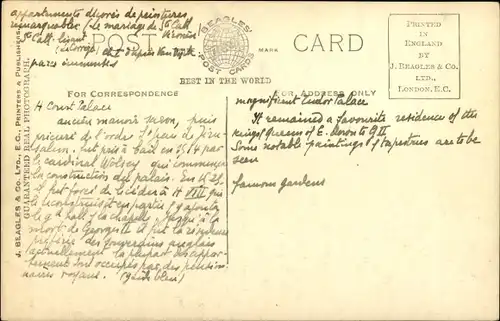 appartements décorés de peintures
remarquables (Le mariage de Ste Cath
Véronèse)
Ste Cath. lisant
(le Corrège) etc d'après Van Dyck
parcs immenses
POST CARD
BEAGLES'
POST CARDS
MARK
BEST IN THE WORLD
PRINTED
IN
ENGLAND
BY
J. BEAGLES & CO.
LTD.,
LONDON, E.C.
FOR CORRESPONDENCE
FOR ADDRESS ONLY
J. BEAGLES & CO. LTD., E.C., PRINTERS & PUBLISHERS.
GUARANTEED REAL PHOTOGRAPH.
H Court Palace
ancien manoir saxon, puis
prieuré de l'ordre St Jean de Jéru-
salem. fut pris à bail en 1514 par
le cardinal Wolsey qui commença
la construction du palais. En
il fut forcé de le céder à H VIII qui
le reconstruisit en partie (y ajouta
le gd hall & la chapelle. Jusqu'à la
mort de George II il fut la résidence
préférée des souverains anglais
actuellement la plupart des appar-
tements son occupés par des pension-
naires royaux. (Guide bleu)
magnificent Tudor Palace
It remained a favourite residence of the
kings & queens of E. down to G II
Some notable paintings & tapestries are to be
seen
famous gardens